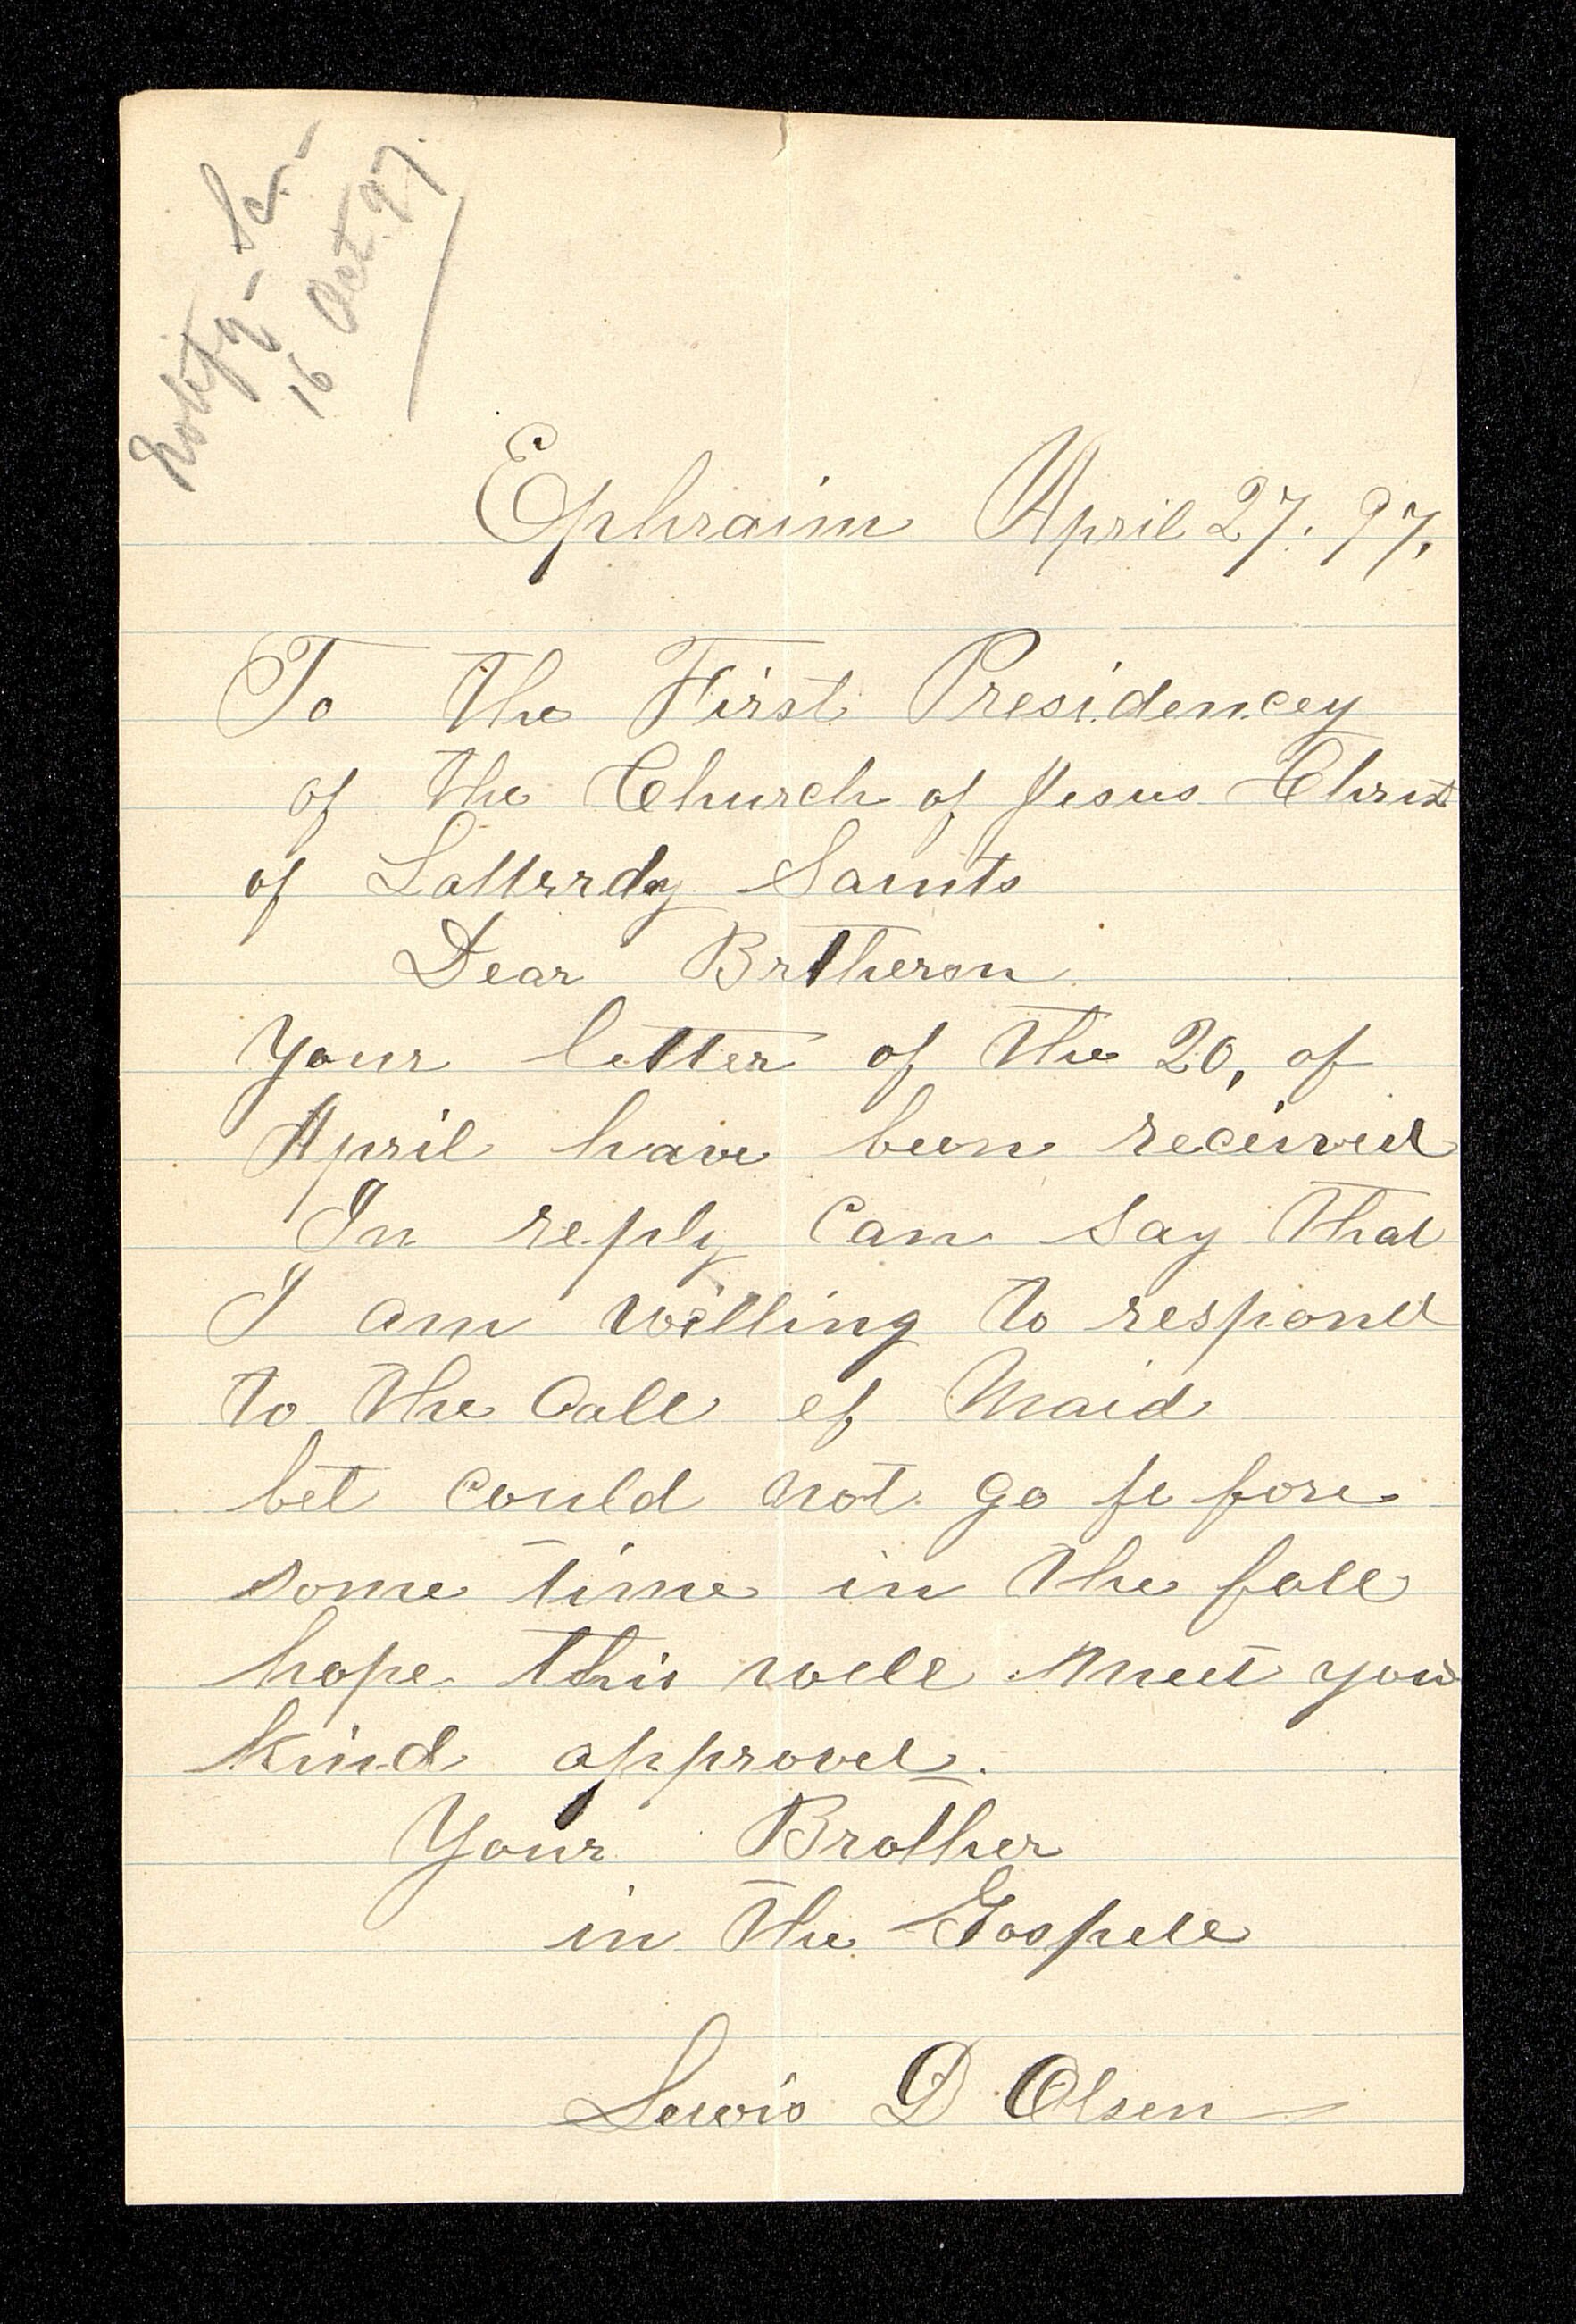 Notify - Sc. -
16 Oct. 97.
Ephraim April 27. 97.
To the First Presidencey
of the Church of Jesus Christ
of Latterrday Saints
Dear Bretheren
Your letter of the 20, of
April have been received
In reply can say that
I am willing to respond
to the Call of Maid
bet could not go fe fore
some time in the fall
hope this well meet your
kind approvel.
Your Brother
in the Gospell
Lewis D Olsen